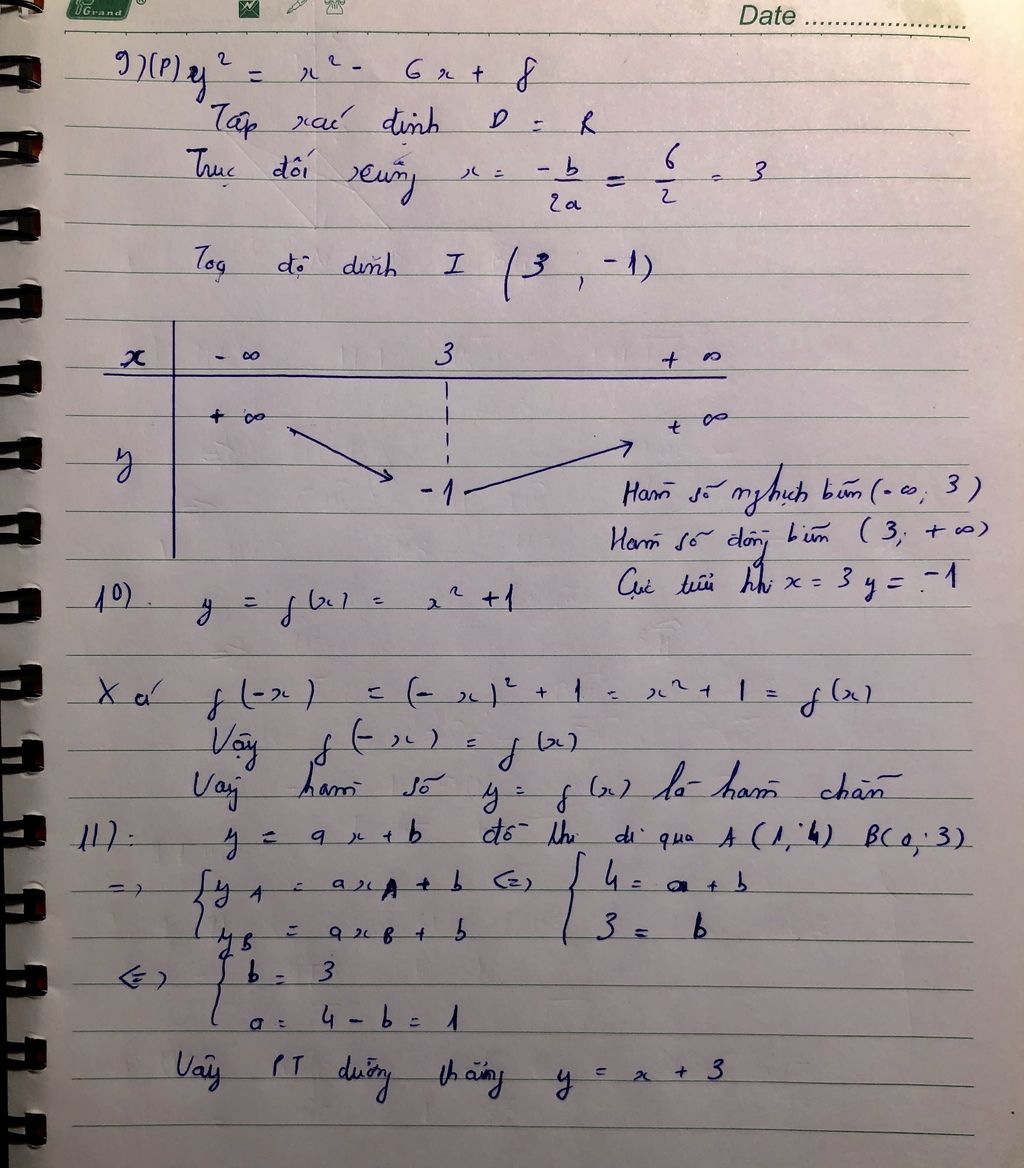 Grand
Date
9) (P) y² = x² - 6x + 8
Tập xác định D = R
Trục đối xứng x = -b/2a = 6/2 = 3
Toạ độ đỉnh I (3, -1)
x -∞ 3 +∞
+∞ +∞
y
-1
Hàm số nghịch biến (-∞; 3)
Hàm số đồng biến (3; +∞)
Cực tiểu khi x = 3 y = -1
10). y = f(x) = x² + 1
Xá f(-x) = (-x)² + 1 = x² + 1 = f(x)
Vậy f(-x) = f(x)
Vay hàm số y = f(x) là hàm chẵn
11): y = ax + b đồ thị đi qua A(1; 4) B(0; 3)
=> { yA = axA + b <=> { 4 = a + b
yB = axB + b 3 = b
<=> { b = 3
a = 4 - b = 1
Vậy PT đường thẳng y = x + 3